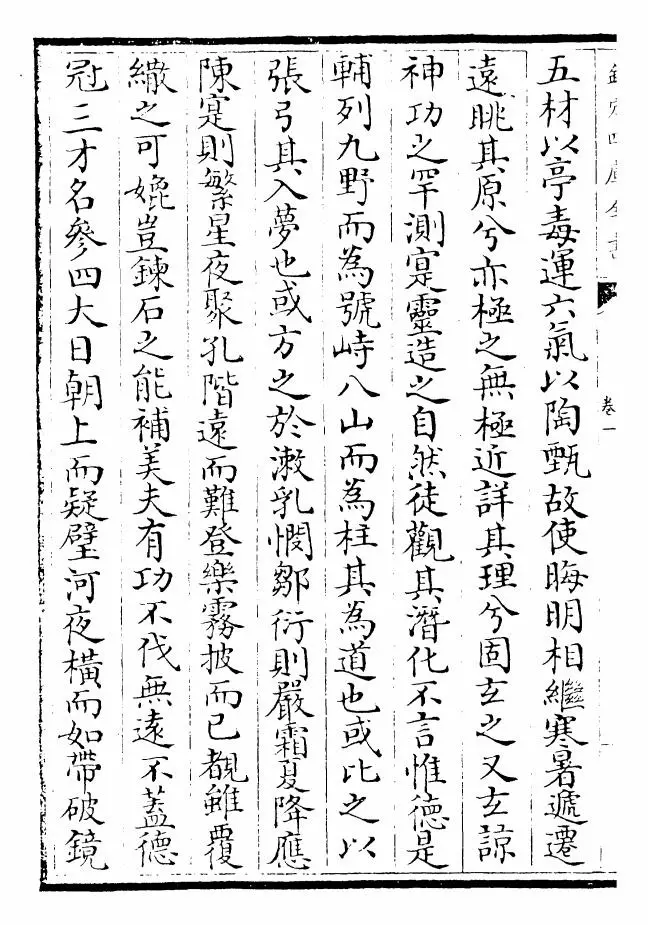 欽定四庫全書
卷一
五材以亭毒運六氣以陶甄故使晦明相繼寒暑遞遷
遠眺其原兮亦極之無極近詳其理兮固玄之又玄諒
神功之罕測寔靈造之自然徒觀其潛化不言惟德是
輔列九野而為號峙八山而為柱其為道也或比之以
張弓其入夢也或方之於漱乳憫鄒衍則嚴霜夏降應
陳寔則繁星夜聚孔階遠而難登樂霧披而已覩雖覆
繖之可媲豈鍊石之能補美夫有功不伐無遠不蓋德
冠三才名參四大日朝上而疑璧河夜橫而如帶破鏡